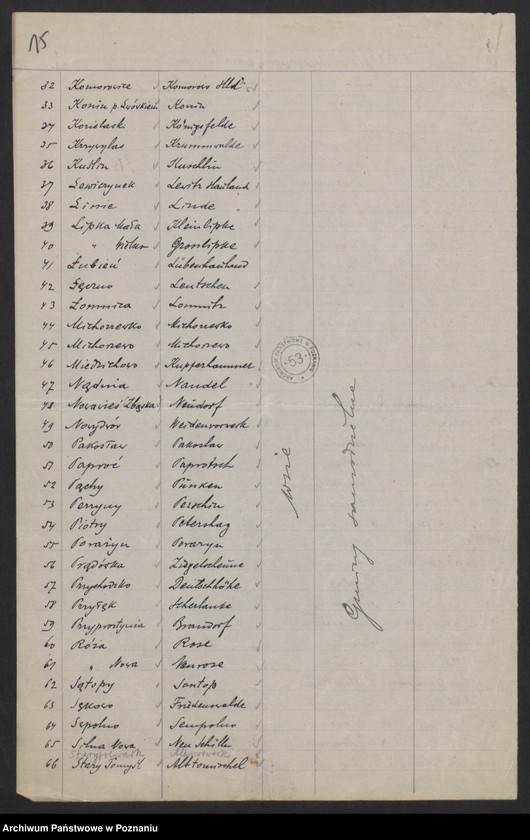 15
32 Komorowice Komorowo Hld
33 Konin p. Lwówkiem Konin
34 Königsfelde
35 Krzywylas Krummwalde
36 Kuślin Kuschlin
37 Lewiczynek Lewitz Hauland
38 Linie Linde
39 Lipka Mała Kleinlipke
40 " Wielka Grosslipke
41 Łubień Lubenhauland
42 Lentschen
43 Łomnica Lomnitz
44 Michorzewko Michorzewko
45 Michorzewo Michorzewo
46 Miedzichowo Kupferhammer
47 Nądnia Nandel
48 Nowawieś Zbąska Neudorf
49 Nowydwór Weidenvorwerk
50 Pakosław Pakoslaw
51 Paproć Paprotsch
52 Pąchy Pünken
53 Perzyny Perschin
54 Piotry Petershag
55 Porażyn Porazyn
56 Prądówka Ziegelscheune
57 Przychodzko Deutschhöhe
58 Przyłęk Scherlanke
59 Przyprostynia Brandorf
60 Róża Rose
61 " Nowa Neurose
62 Sątopy Sontop
63 Sękowo Friedenwalde
64 Sępolno Sempolno
65 Silna Nowa Neu Schilln
Altvorwerk
66 Stary Tomyśl Alttomischel
wsie
Gminy samodzielne
ARCHIWUM PAŃSTWOWE W POZNANIU
53
Archiwum Państwowe w Poznaniu